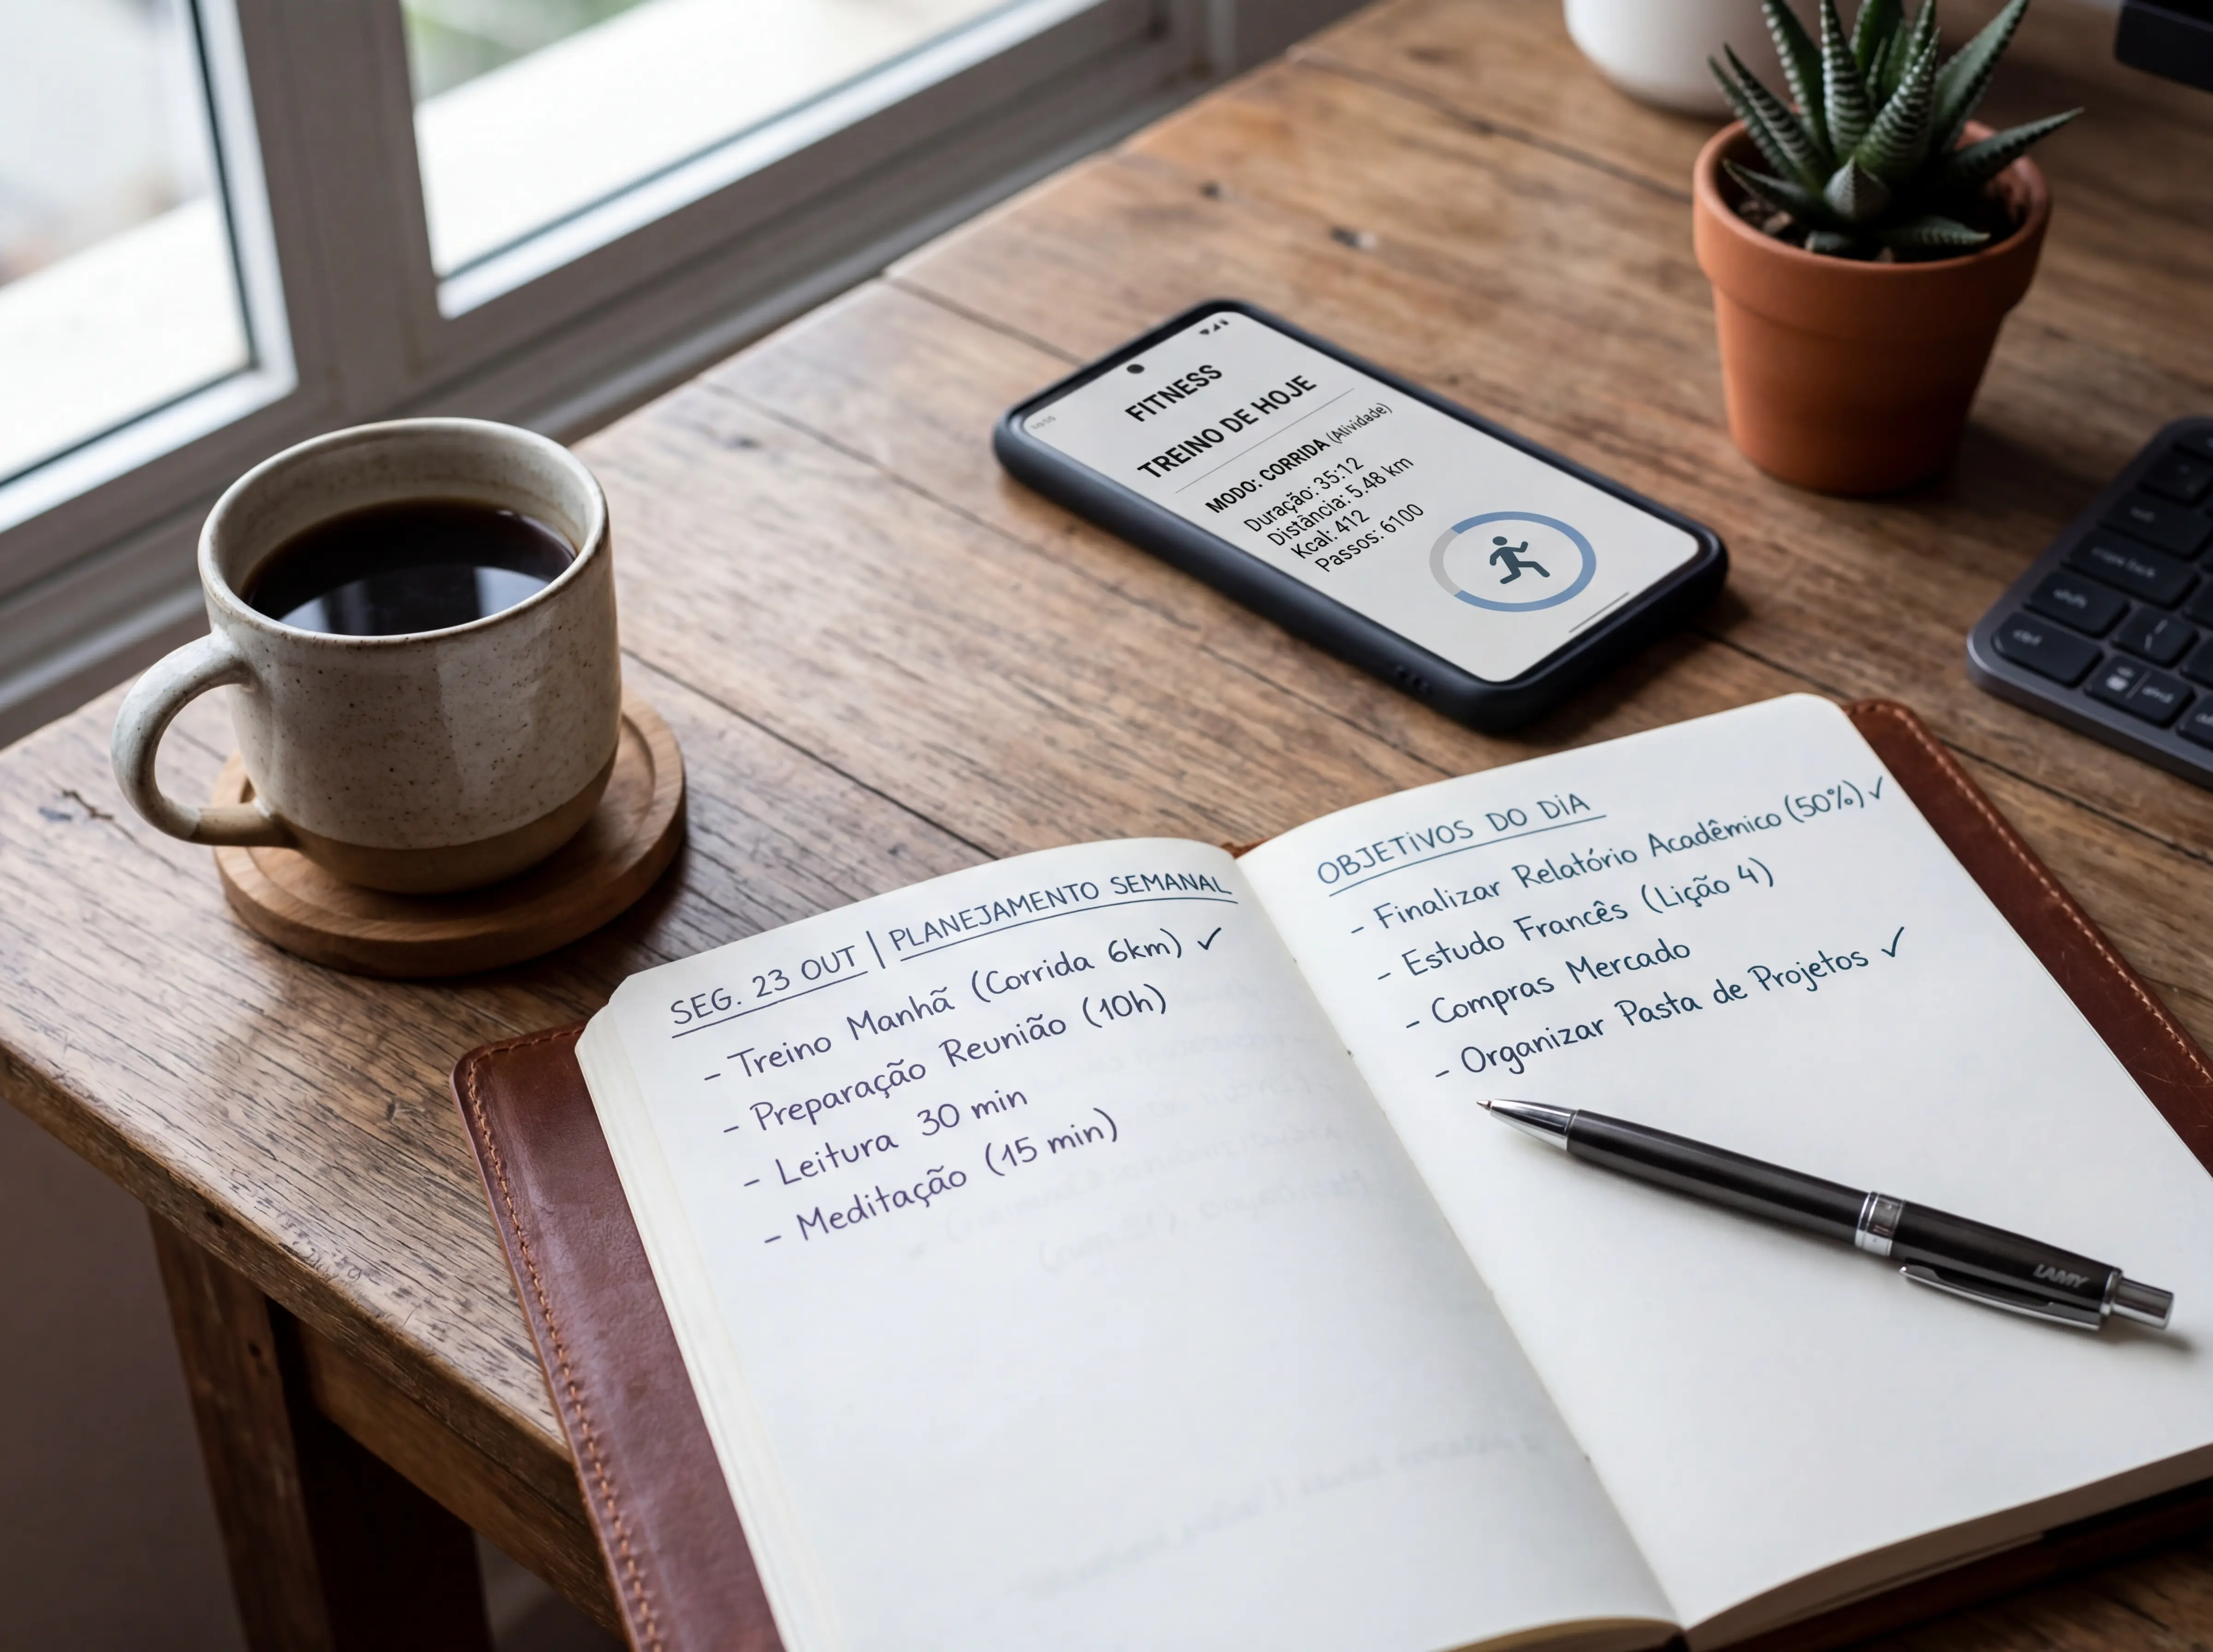 FITNESS
TREINO DE HOJE
MODO: CORRIDA (Atividade)
Duração: 35:12
Distância: 5.48 km
Kcal: 412
Passos: 6100
SEG. 23 OUT | PLANEJAMENTO SEMANAL
- Treino Manhã (Corrida 6km) ✓
- Preparação Reunião (10h)
- Leitura 30 min
- Meditação (15 min)
OBJETIVOS DO DIA
- Finalizar Relatório Acadêmico (50%) ✓
- Estudo Francês (Lição 4)
- Compras Mercado
- Organizar Pasta de Projetos ✓
LAMY